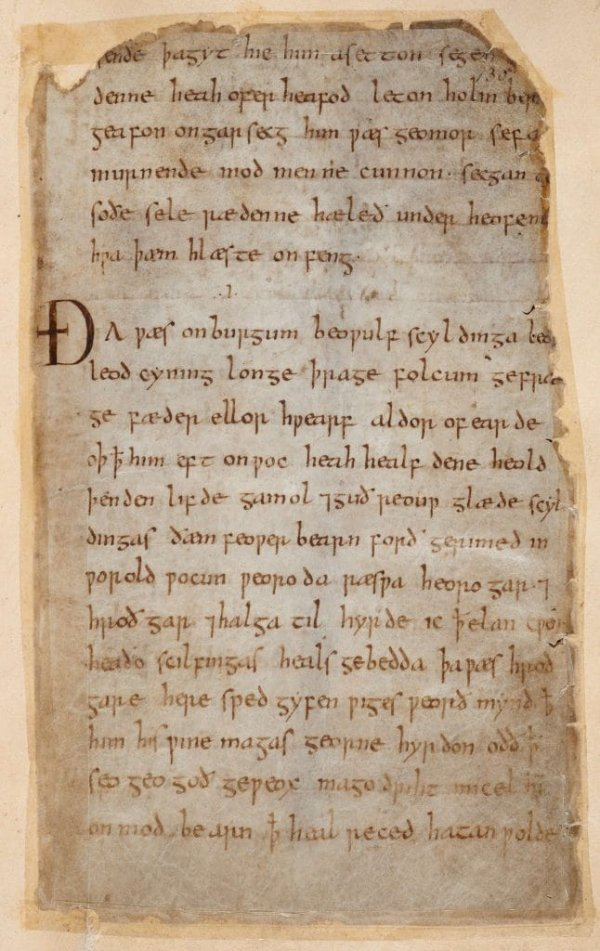 sende þagyt hie him asetton segen
130
denne heah ofer heafod leton holm ber
geafon ongarsecg him ƿæs geomor sefa
murnende mod men ne cunnon· secgan
soðe sele rædenne hæleð under heofenu
hƿa þæm hlæste onfeng·
·I·
ÐA ƿæs onburgum beoƿulf scyldinga beo
leod cyning longe þrage folcum gefræ
ge fæder ellor hƿearf aldor ofearde
oþ ꝥ him eft onƿoc heah healfdene heold
þenden lifde gamol ⁊guð reouƿ glæde scyl
dingas ðæm feoƿer bearn forð gerimed in
ƿorold ƿocun ƿeoroda ræsƿa heorogar ⁊
hroðgar ⁊halga til hyrde ic ꝥ elan cƿen
heaðo scilfingas healsgebedda þaƿæs hroð
gare here sped gyfen ƿiges ƿeorð mynd ꝥ
him his ƿine magas georne hyrdon oðð ꝥ
seo geogoð geƿeox mago driht micel hī
onmod bearn ꝥ heal reced hatan ƿolde